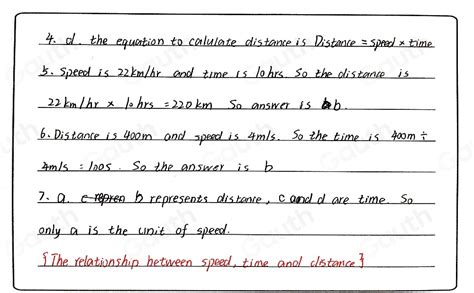 4. d. the equation to calulate distance is Distance = speed × time
5. Speed is 22km/hr and time is 10hrs. So the distance is
22km/hr × 10hrs = 220km So answer is b.
6. Distance is 400m and speed is 4m/s. So the time is 400m ÷
4m/s = 100s. So the answer is b
7. a. b represents distance, c and d are time. So
only a is the unit of speed.
{The relationship between speed, time and distance}